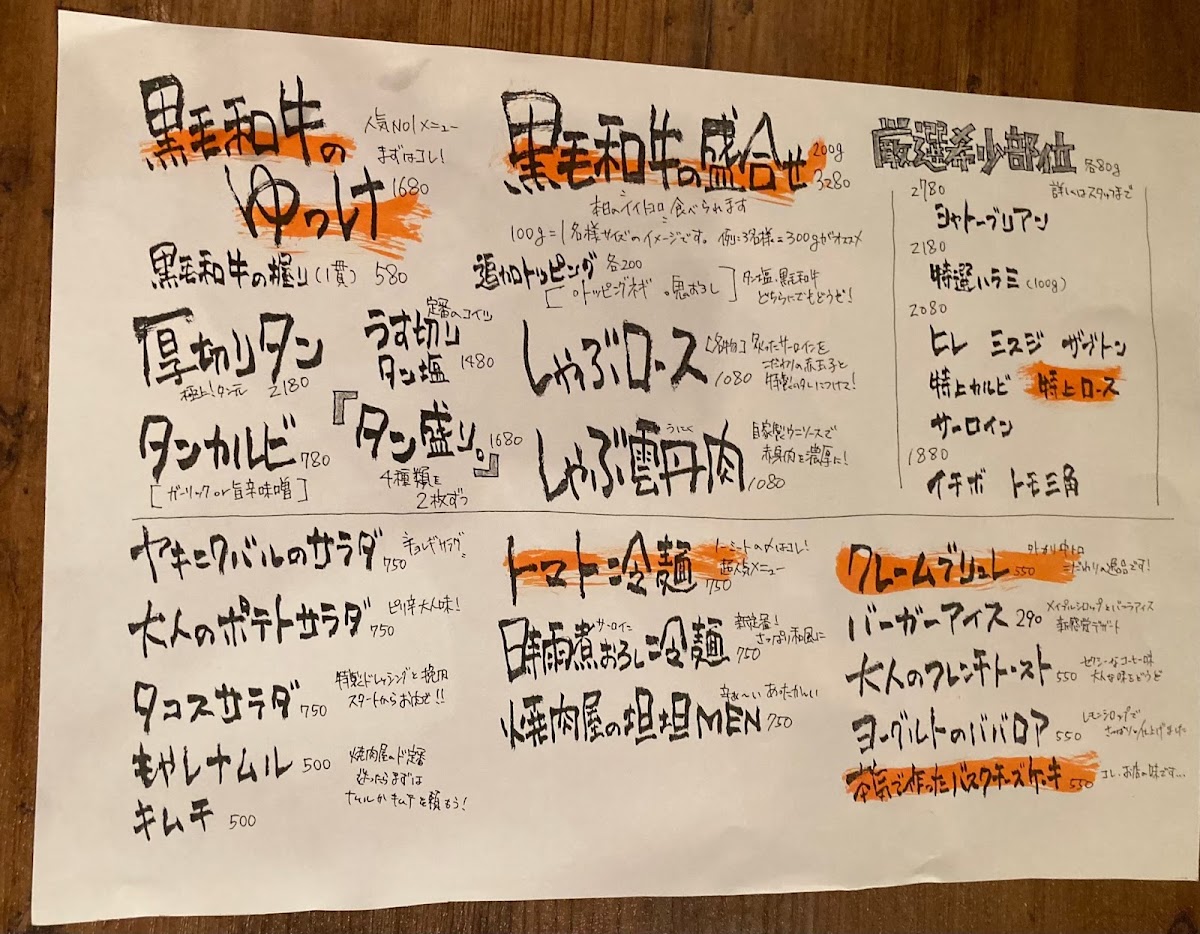 黒毛和牛の
ゆっけ 1680
人気NO1メニュー
まずはコレ!
黒毛和牛の握り(1貫) 580
厚切りタン
極上!タン元 2180
定番のコイツ
うす切り
タン塩 1480
タンカルビ 780
[ガーリック or 旨辛味噌]
『タン盛り。』1680
4種類を
2枚ずつ
黒毛和牛の盛合せ
200g
3280
本日のイイトコロ食べられます
100g=1名様サイズのイメージです。例:3名様=300gがオススメ
追加トッピング 各200
[・トッピングネギ ・鬼おろし]
タン塩、黒毛和牛
どちらにでもどうぞ!
しゃぶロース 1080
[名物] 炙ったサーロインを
こだわりの赤玉子と
特製のタレにつけて!
うにく
しゃぶ雲丹肉 1080
自家製ウニソースで
赤身肉を濃厚に!
厳選希少部位 各80g
詳しくはスタッフまで
2780
シャトーブリアン
2180
特選ハラミ(100g)
2080
ヒレ ミスジ ザブトン
特上カルビ 特上ロース
サーロイン
1880
イチボ トモ三角
ヤキニクバルのサラダ 750
チョレギサラダ
大人のポテトサラダ 750
ピリ辛大人味!
タコスサラダ 750
特製ドレッシングと
スタートからお得です!!
もやしナムル 500
キムチ 500
焼肉屋のド定番
迷ったらまずは
ナムルかキムチを頼もう!
トマト冷麺 750
ミートの〆はコレ!
超人気メニュー
サーロイン
時雨煮おろし冷麺 750
新定番!
さっぱり和風に
焼肉屋の坦坦MEN 750
辛わ〜い あったかい
クレームブリュレ 550
こだわりの逸品です!
バーガーアイス 290
メイプルシロップとバニラアイス
新感覚デザート
大人のフレンチトースト 550
セクシーなコーヒー味
大人な味をどうぞ
ヨーグルトのババロア 550
レモンシロップで
さっぱり仕上げました
本気で作ったバスクチーズケーキ 550
コレ、お店の味です...